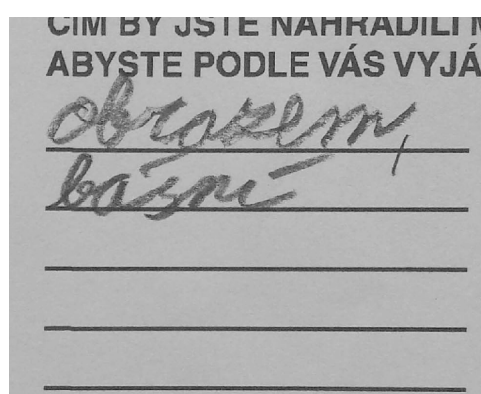 ČÍM BY JSTE NAHRADILI
ABYSTE PODLE VÁS VYJÁ
obrazem,
básní